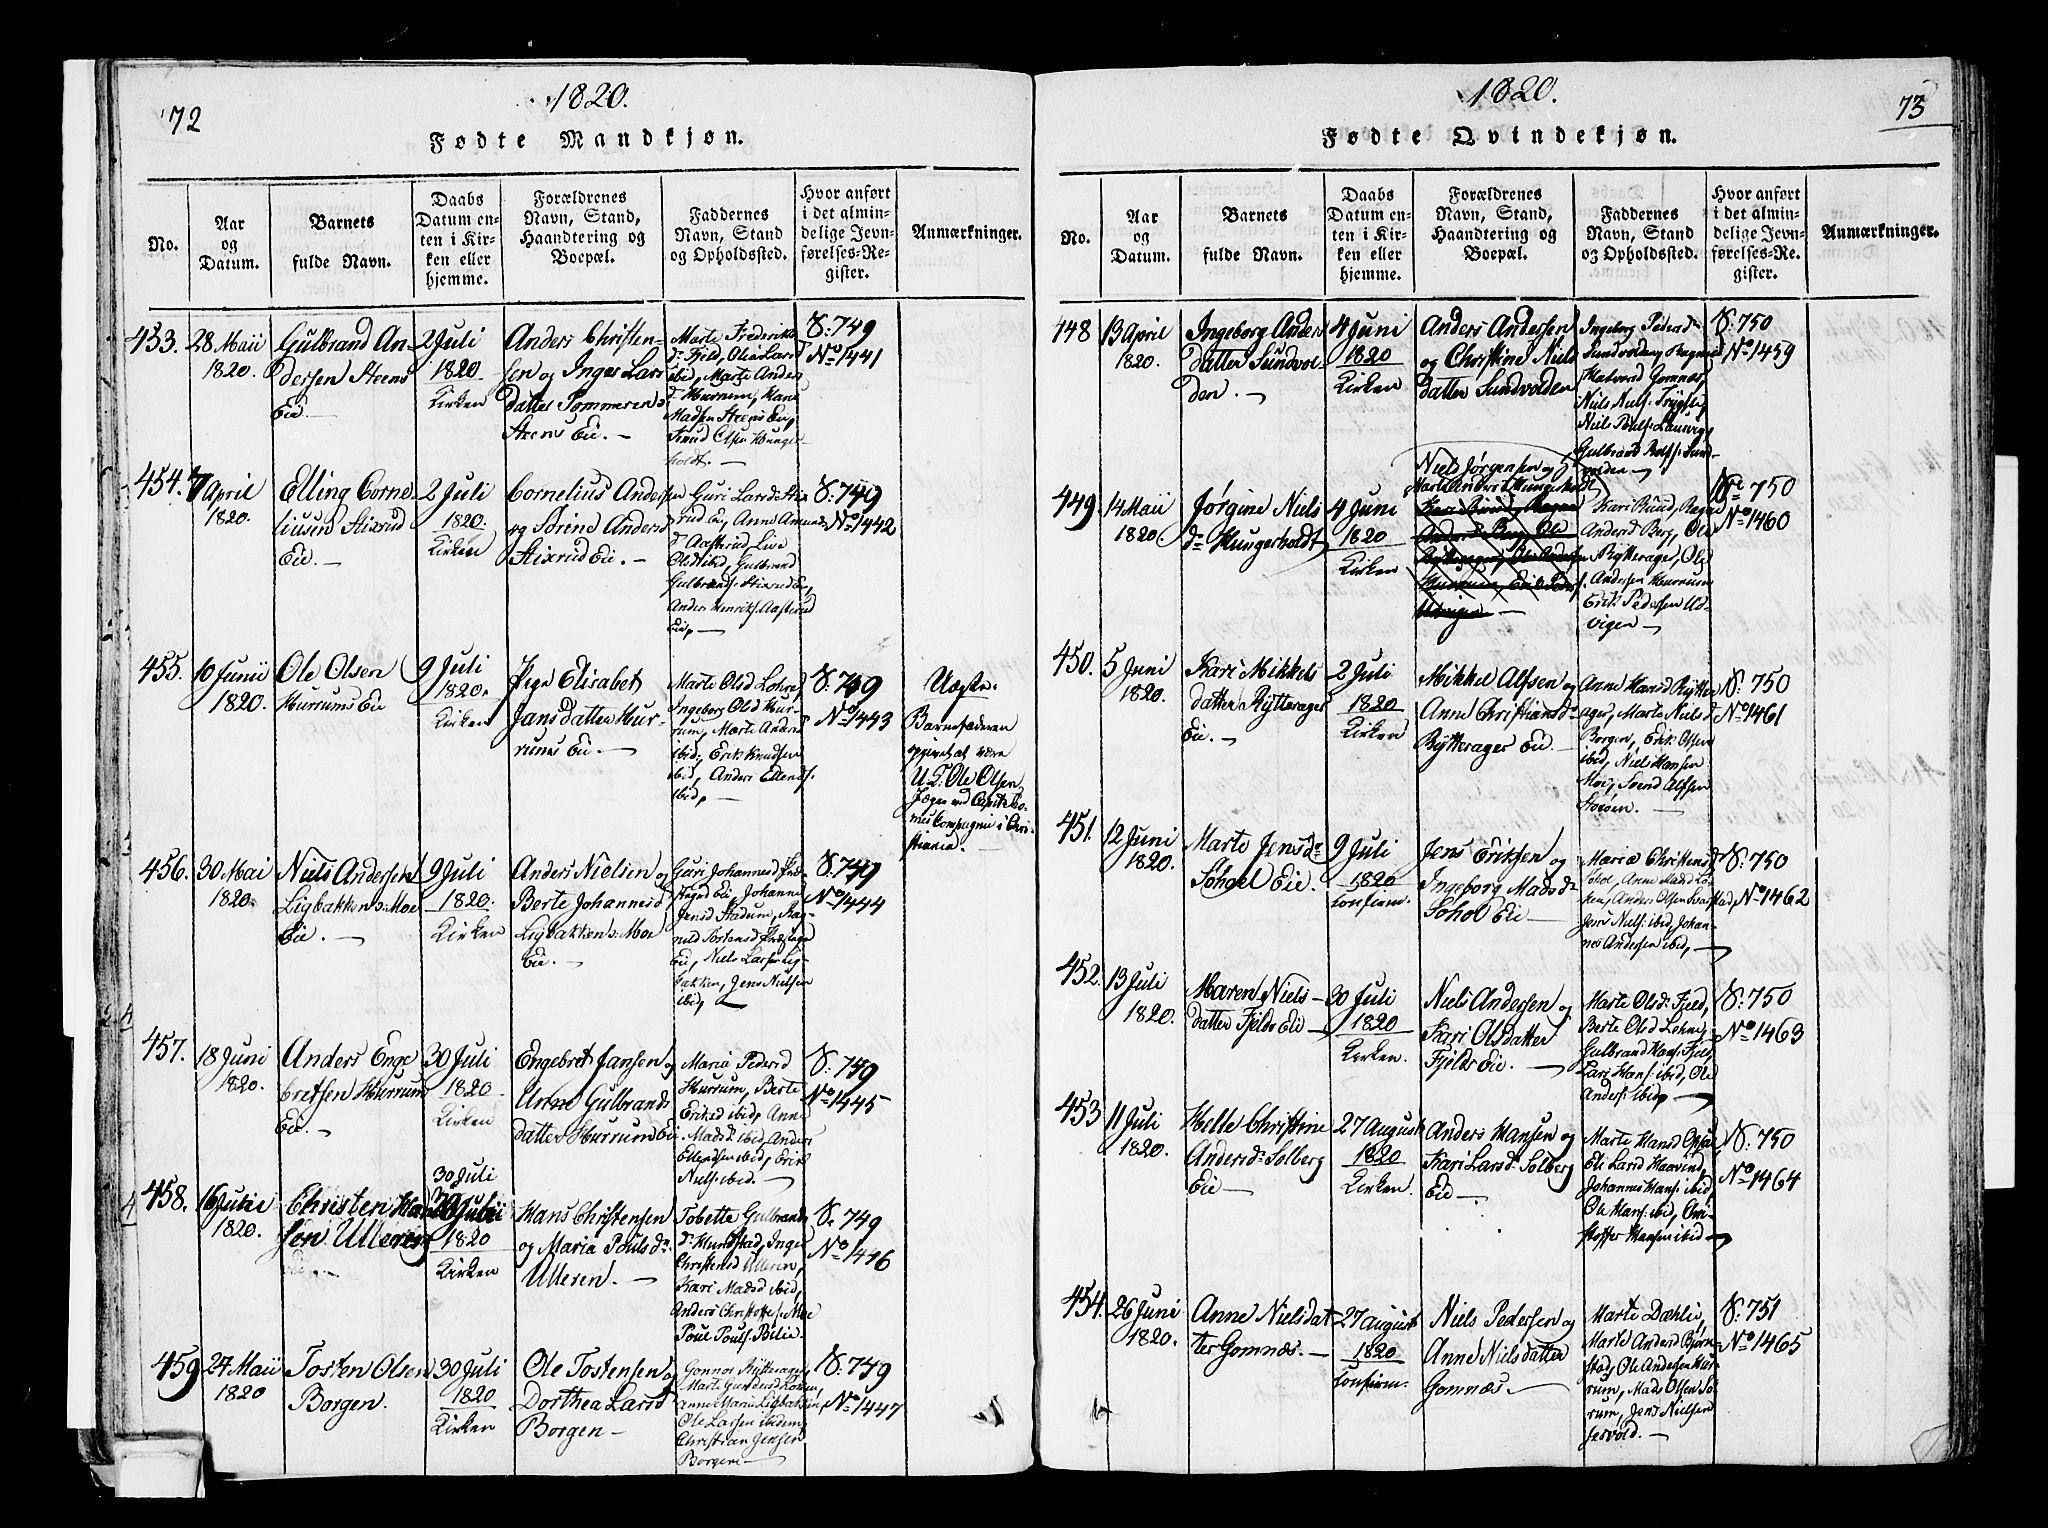 72
1820.
Fødte Mandkjøn.
No.
Aar
og
Datum.
Barnets
fulde Navn.
Daabs
Datum en-
ten i Kir-
ken eller
hjemme.
Forældrenes
Navn, Stand,
Haandtering og
Boepæl.
Faddernes
Navn, Stand
og Opholdssted.
Hvor anført
i det almin-
delige Jevn-
førelses-Re-
gister.
Anmærkninger.
453.
28 Maii
1820.
Gulbrand An-
dersen Steens
Eie. —
2 Juli
1820
Kirken
Anders Christen-
sen og Inger Lars
datter Pommeren
Steens Eie. —
Marte Frederiks
dr Fjeld, Olia Larsd
ibid, Marte Anders
dr Hurrum, Hans
Madsen Steens Eie,
Knud Olsen Hunger-
holdt. —
S: 749
No 1441
454.
7 April
1820.
Elling Corne-
liusen Stixrud
Eie. —
2 Juli
1820.
Kirken
Cornelius Andersen
og Sørine Andersd
Stixrud Eie. —
Guri Larsd Stix-
rud Eie, Anne Amunds
d Aasterud, Live
Olsd ibid, Gulbrand
Gulbrands. Stixrud Eie,
Anders Henriks. Aasterud
Eie, —
S: 749
No 1442
455.
10 Junii
1820.
Ole Olsen
Hurrums Eie
9 Juli
1820.
Kirken
Pige Elisabet
Jansdatter Hur-
rums Eie. —
Marte Olsd Lohre,
Ingeborg Olsd Hur-
rum, Marte Andersd
ibid, Erik Knudsen
ibid, Anders Ellends.
ibid, —
S: 749
No 1443
Uægte.
Barnefaderen
opgivet at være
U. S. Ole Olsen
Jæger ved
Compagnie i Chri-
stiania. —
456.
30 Mai
1820.
Niels Andersen
Ligbakken Moe
Eie. —
9 Juli
1820.
Kirken
Anders Nielsen og
Berte Johannesd
Ligbakken Moe
Eie. —
Guri Johannesd Præ-
stegrd Eie, Johanne
Jensd Stadum, Rag-
nild Tostensd Præstegrd
Eie, Niels Larsen Lig-
bakken, Jens Nielsen
ibid, —
S: 749
No 1444
457.
18 Juni
1820.
Anders Enge
bretsen Hurrum
Eie. —
30 Juli
1820
Kirken
Engebret Jansen og
Anne Gulbrands
datter Hurrum Eie
Maria Pedersd
Hurrum, Berte
Eriksd ibid, Anne
Madsd. ibid, Anders
Ellendsen ibid, Erik
Niels. ibid. —
S: 749
No 1445
458.
16 Julii
1820.
Christen Han
sen Ulleren
30 Juli
1820
Kirken
Hans Christensen
og Maria Pouls dr.
Ulleren. —
Tobette Gulbrands
dr Hundstad, Inger
Christensd Ulleren,
Kari Madsd ibid,
Anders Christoffs: Moe
Poul Pouls. Bilie. —
S: 749
No 1446
459
24 Maii
1820
Tosten Olsen
Borgen.
30 Juli
1820
Kirken
Ole Tostensen og
Dorthea Larsd
Borgen —
Gonnor Rytterager,
Marte Gundersd Løken,
Anne Maria Ligbakken,
Ole Larsen ibidem,
Christian Jensen
Borgen —
S: 749
No 1447
1820.
73
Fødte Qvindekjøn.
No.
Aar
og
Datum.
Barnets
fulde Navn.
Daabs
Datum en-
ten i Kir-
ken eller
hjemme.
Forældrenes
Navn, Stand,
Haandtering og
Boepæl.
Faddernes
Navn, Stand
og Opholdssted.
Hvor anført
i det almin-
delige Jevn-
førelses-Re-
gister.
Anmærkninger.
448
13 April
1820.
Ingeborg Anders
datter Sundvol-
den. —
4 Juni
1820
Kirken
Anders Andersen
og Christine Niels
datter Sundvolden
Ingeborg Pedersdr
Sundvolden, Ragnild
Halvorsd Gomnæs,
Niels Niels. Trøgsle,
Niels Pouls. Lauvig,
Gulbrand Rolfs. Sund-
volden —
S: 750
No 1459
449.
14 Maii
1820.
Jørgine Niels
dr Hungerholdt
4 Juni
1820
Kirken
Niels Jørgensen og
Marte Andersd Hungerholdt
Kari Rund, Ragne
Andersd Berg, Ole
Rytterager, Ole
Andersen Hurrum
Erik Pedersen Ud-
vigen —
S: 750
No 1460
450.
5 Juni
1820.
Kari Mikkels
datter Rytterager
Eie. —
2 Juli
1820
Kirken
Mikkel Alfsen og
Anne Christiansdr
Rytterager Eie —
Anne Hansd Rytter
ager, Marte Niels d
Borgen, Erik Olsen
ibid, Niels Hansen
Moe, Svend Alfsen
Storøen. —
S: 750
No 1461
451.
12 Juni
1820.
Marte Jensdr
Sohol Eie. —
9 Juli
1820
confirm.
Jens Eriksen og
Ingeborg Madsdr
Sohol Eie —
Maria Christensd
Sohol, Anne Madsd Lø-
ken, Anders Olsen Svarstad,
Jens Niels. ibid, Johan-
nes Andersen ibid, —
S: 750
No 1462
452.
13 Juli
1820.
Maren Niels-
datter Fjelds Eie —
30 Juli
1820
Kirken.
Niels Andersen og
Kari Olsdatter
Fjelds Eie. —
Marte Olsd. Fjeld,
Berte Olsd Lehne,
Gulbrand Hans. Fjeld,
Lars Hans. ibid, Ole
Anders. ibid, —
S: 750
No 1463
453
11 Juli
1820.
Helle Christine
Andersdr Solberg
Eie —
27 August
1820
Kirken.
Anders Hansen og
Kari Larsdr Solberg
Eie —
Marte Hansd Opsal
Eli Larsd Haavind,
Johannes Hans. ibid,
Ole Hans. ibid, Chri-
stoffer Hansen ibid —
S: 750
No 1464
454.
26 Juni
1820.
Anne Nielsdat
ter Gomnæs. —
27 August
1820
confirm.
Niels Pedersen og
Anne Nielsdatter
Gomnæs —
Marte Dæhlie,
Marte Andersd Bjørn-
stad, Ole Andersen Hur-
rum, Mads Olsen So-
rum, Jens Nielsen
Sørvold. —
S: 751
No 1465